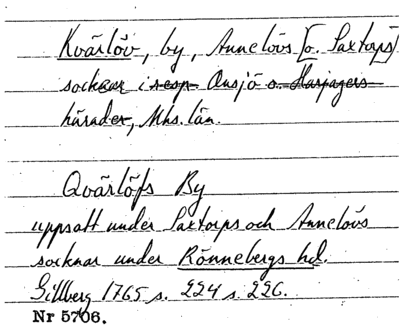 Kvärlöv, by, Annelövs [o. Saxtorps]
socknar i resp Onsjö o. Harjagers
härader, Mhs. län.
Qvärlöfs By
uppsatt under Saxtorps och Annelövs
socknar under Rönnebergs hd.
Gillberg 1765 s. 224 s. 226.
Nr 5706.